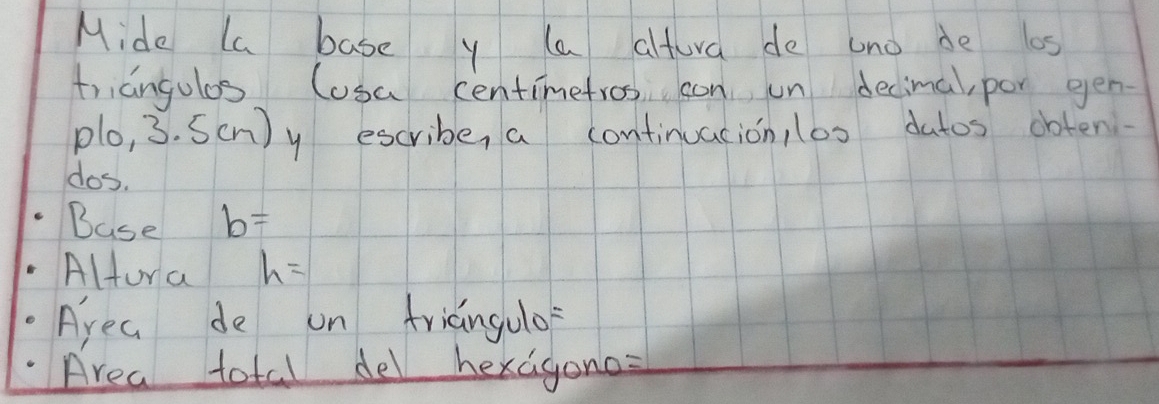 Mide la base y la altura de uno de los
triángulos (usa centímetros con un decimal, por ejem-
plo, 3.5 cm) y escribe, a continuación, los datos obteni-
dos.
• Base b=
• Altura h=
• Área de un triángulo=
• Área total del hexágono=